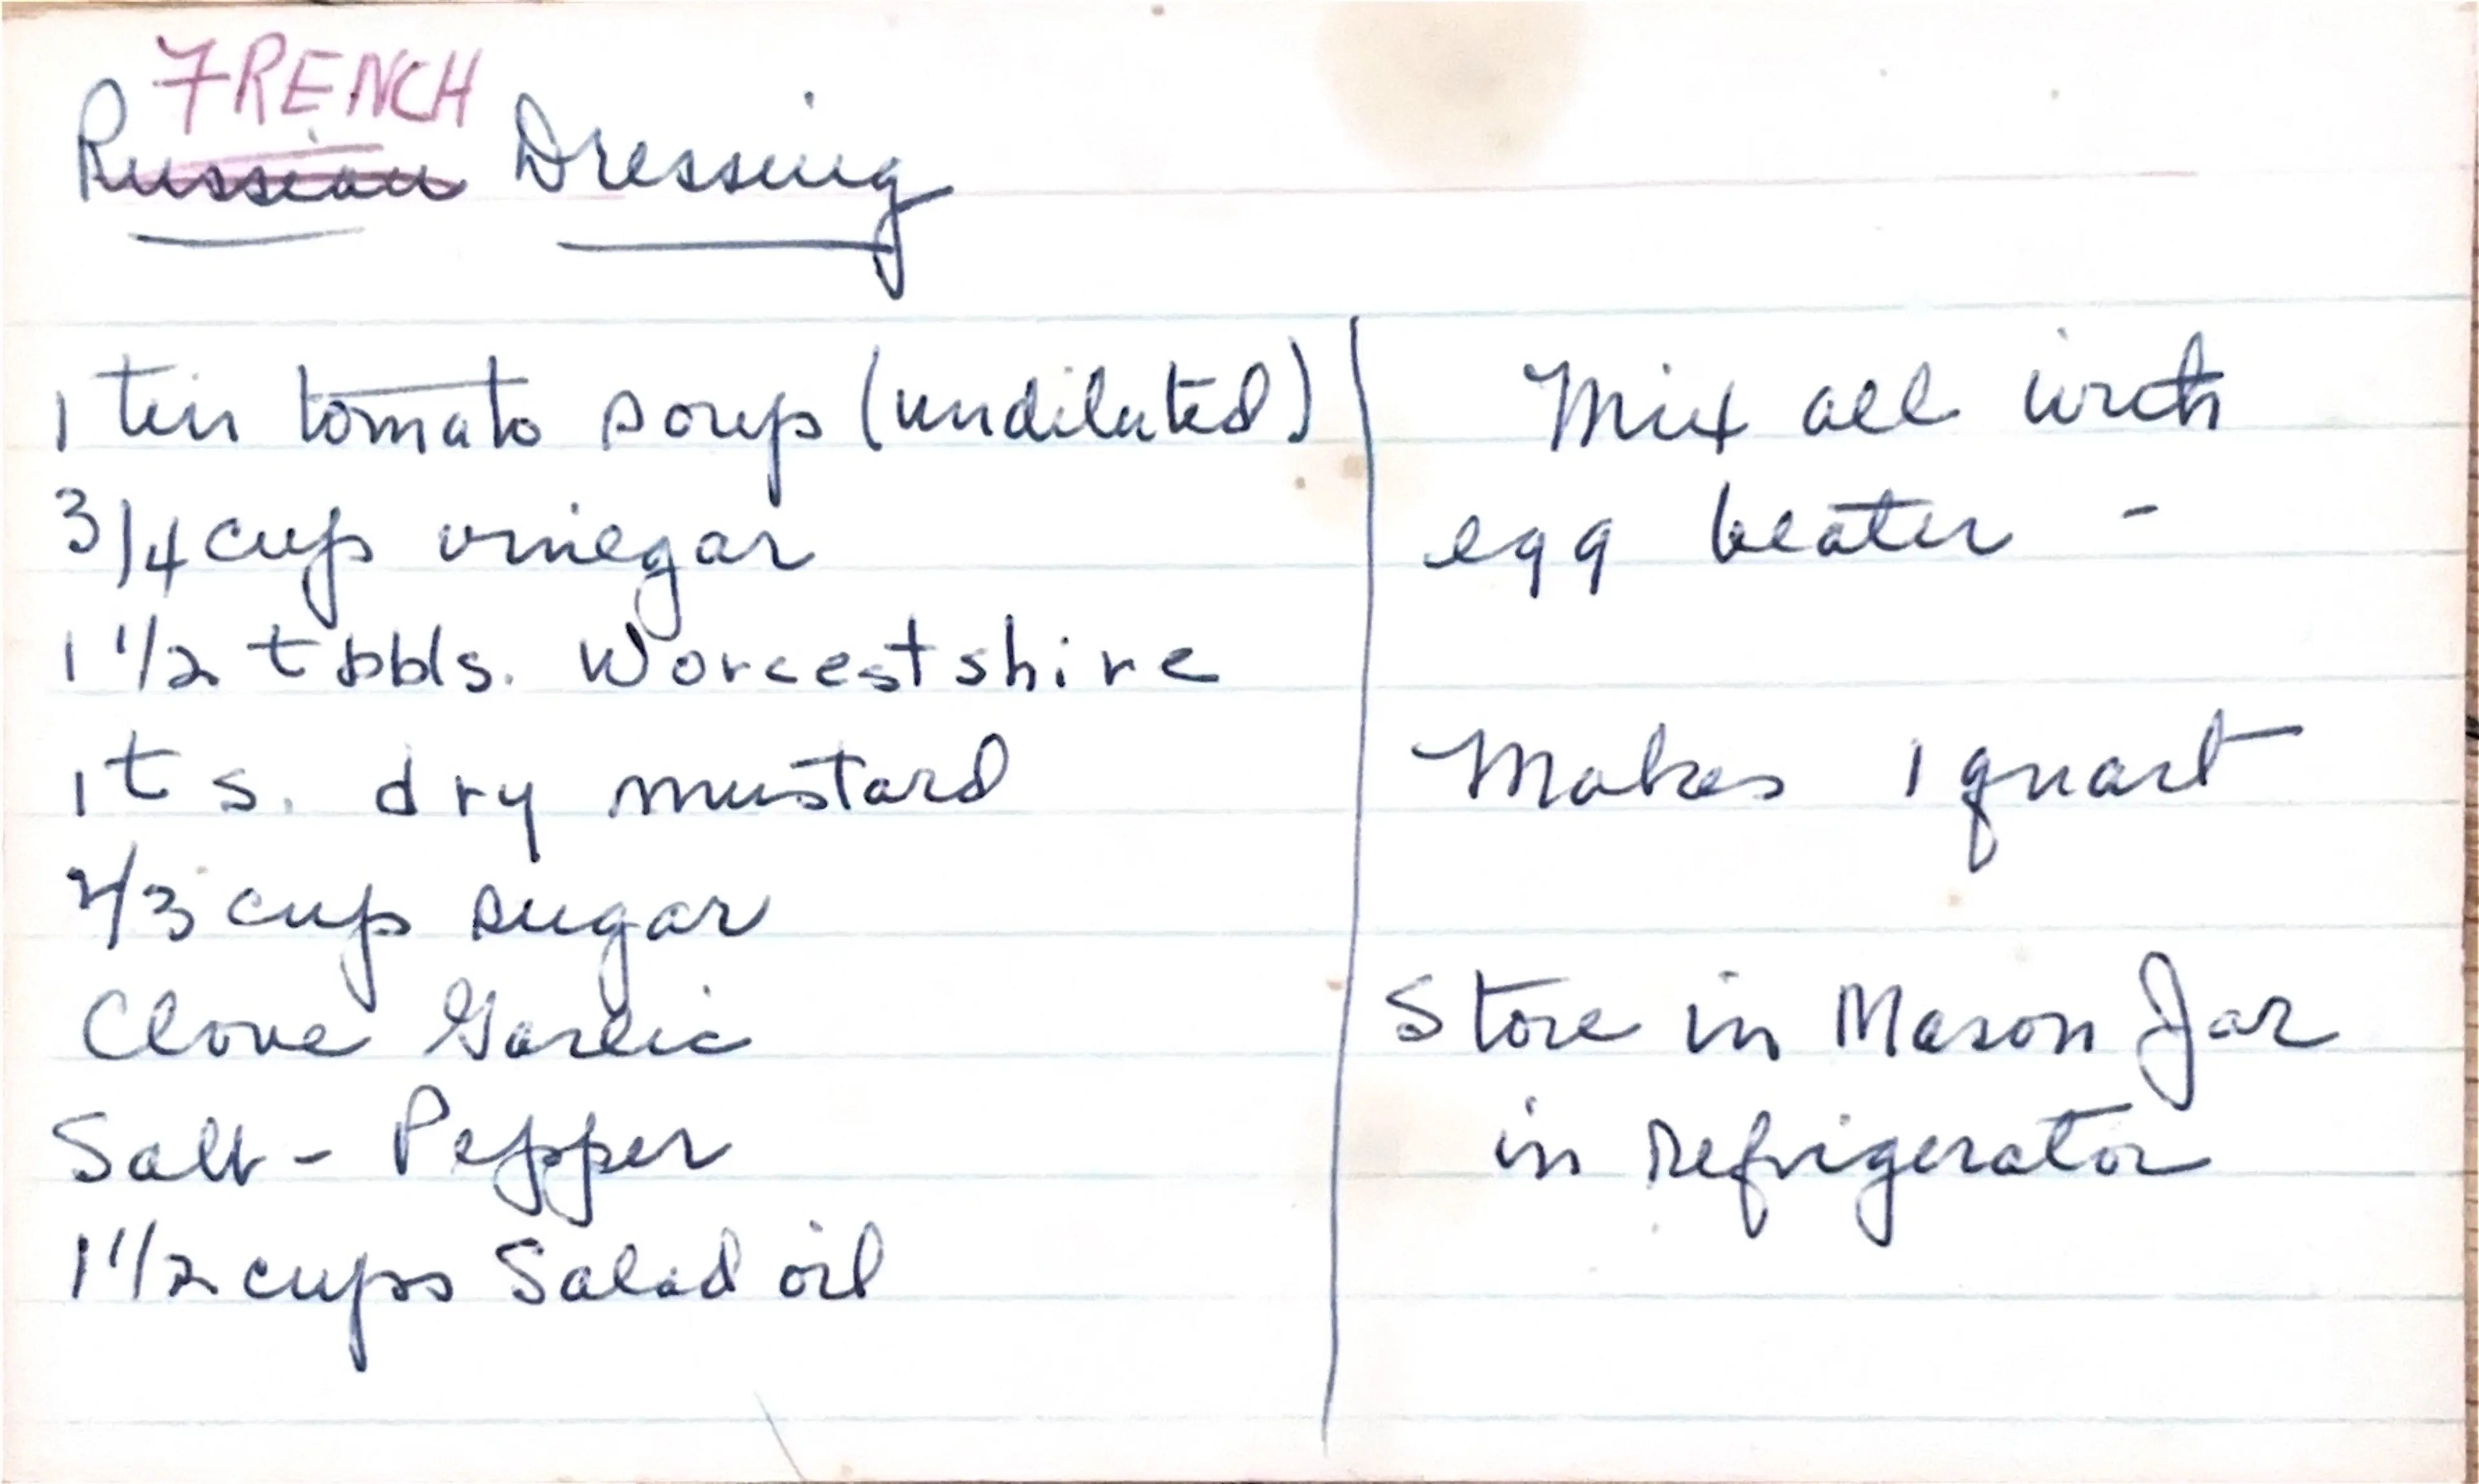 FRENCH
Russian Dressing
1 tin tomato soup (undiluted)
3/4 cup vinegar
1 1/2 tbbls. Worcestshire
1 ts. dry mustard
2/3 cup sugar
Clove Garlic
Salt - Pepper
1 1/2 cups Salad oil
Mix all with
egg beater -
Makes 1 quart
Store in Mason Jar
in refrigerator